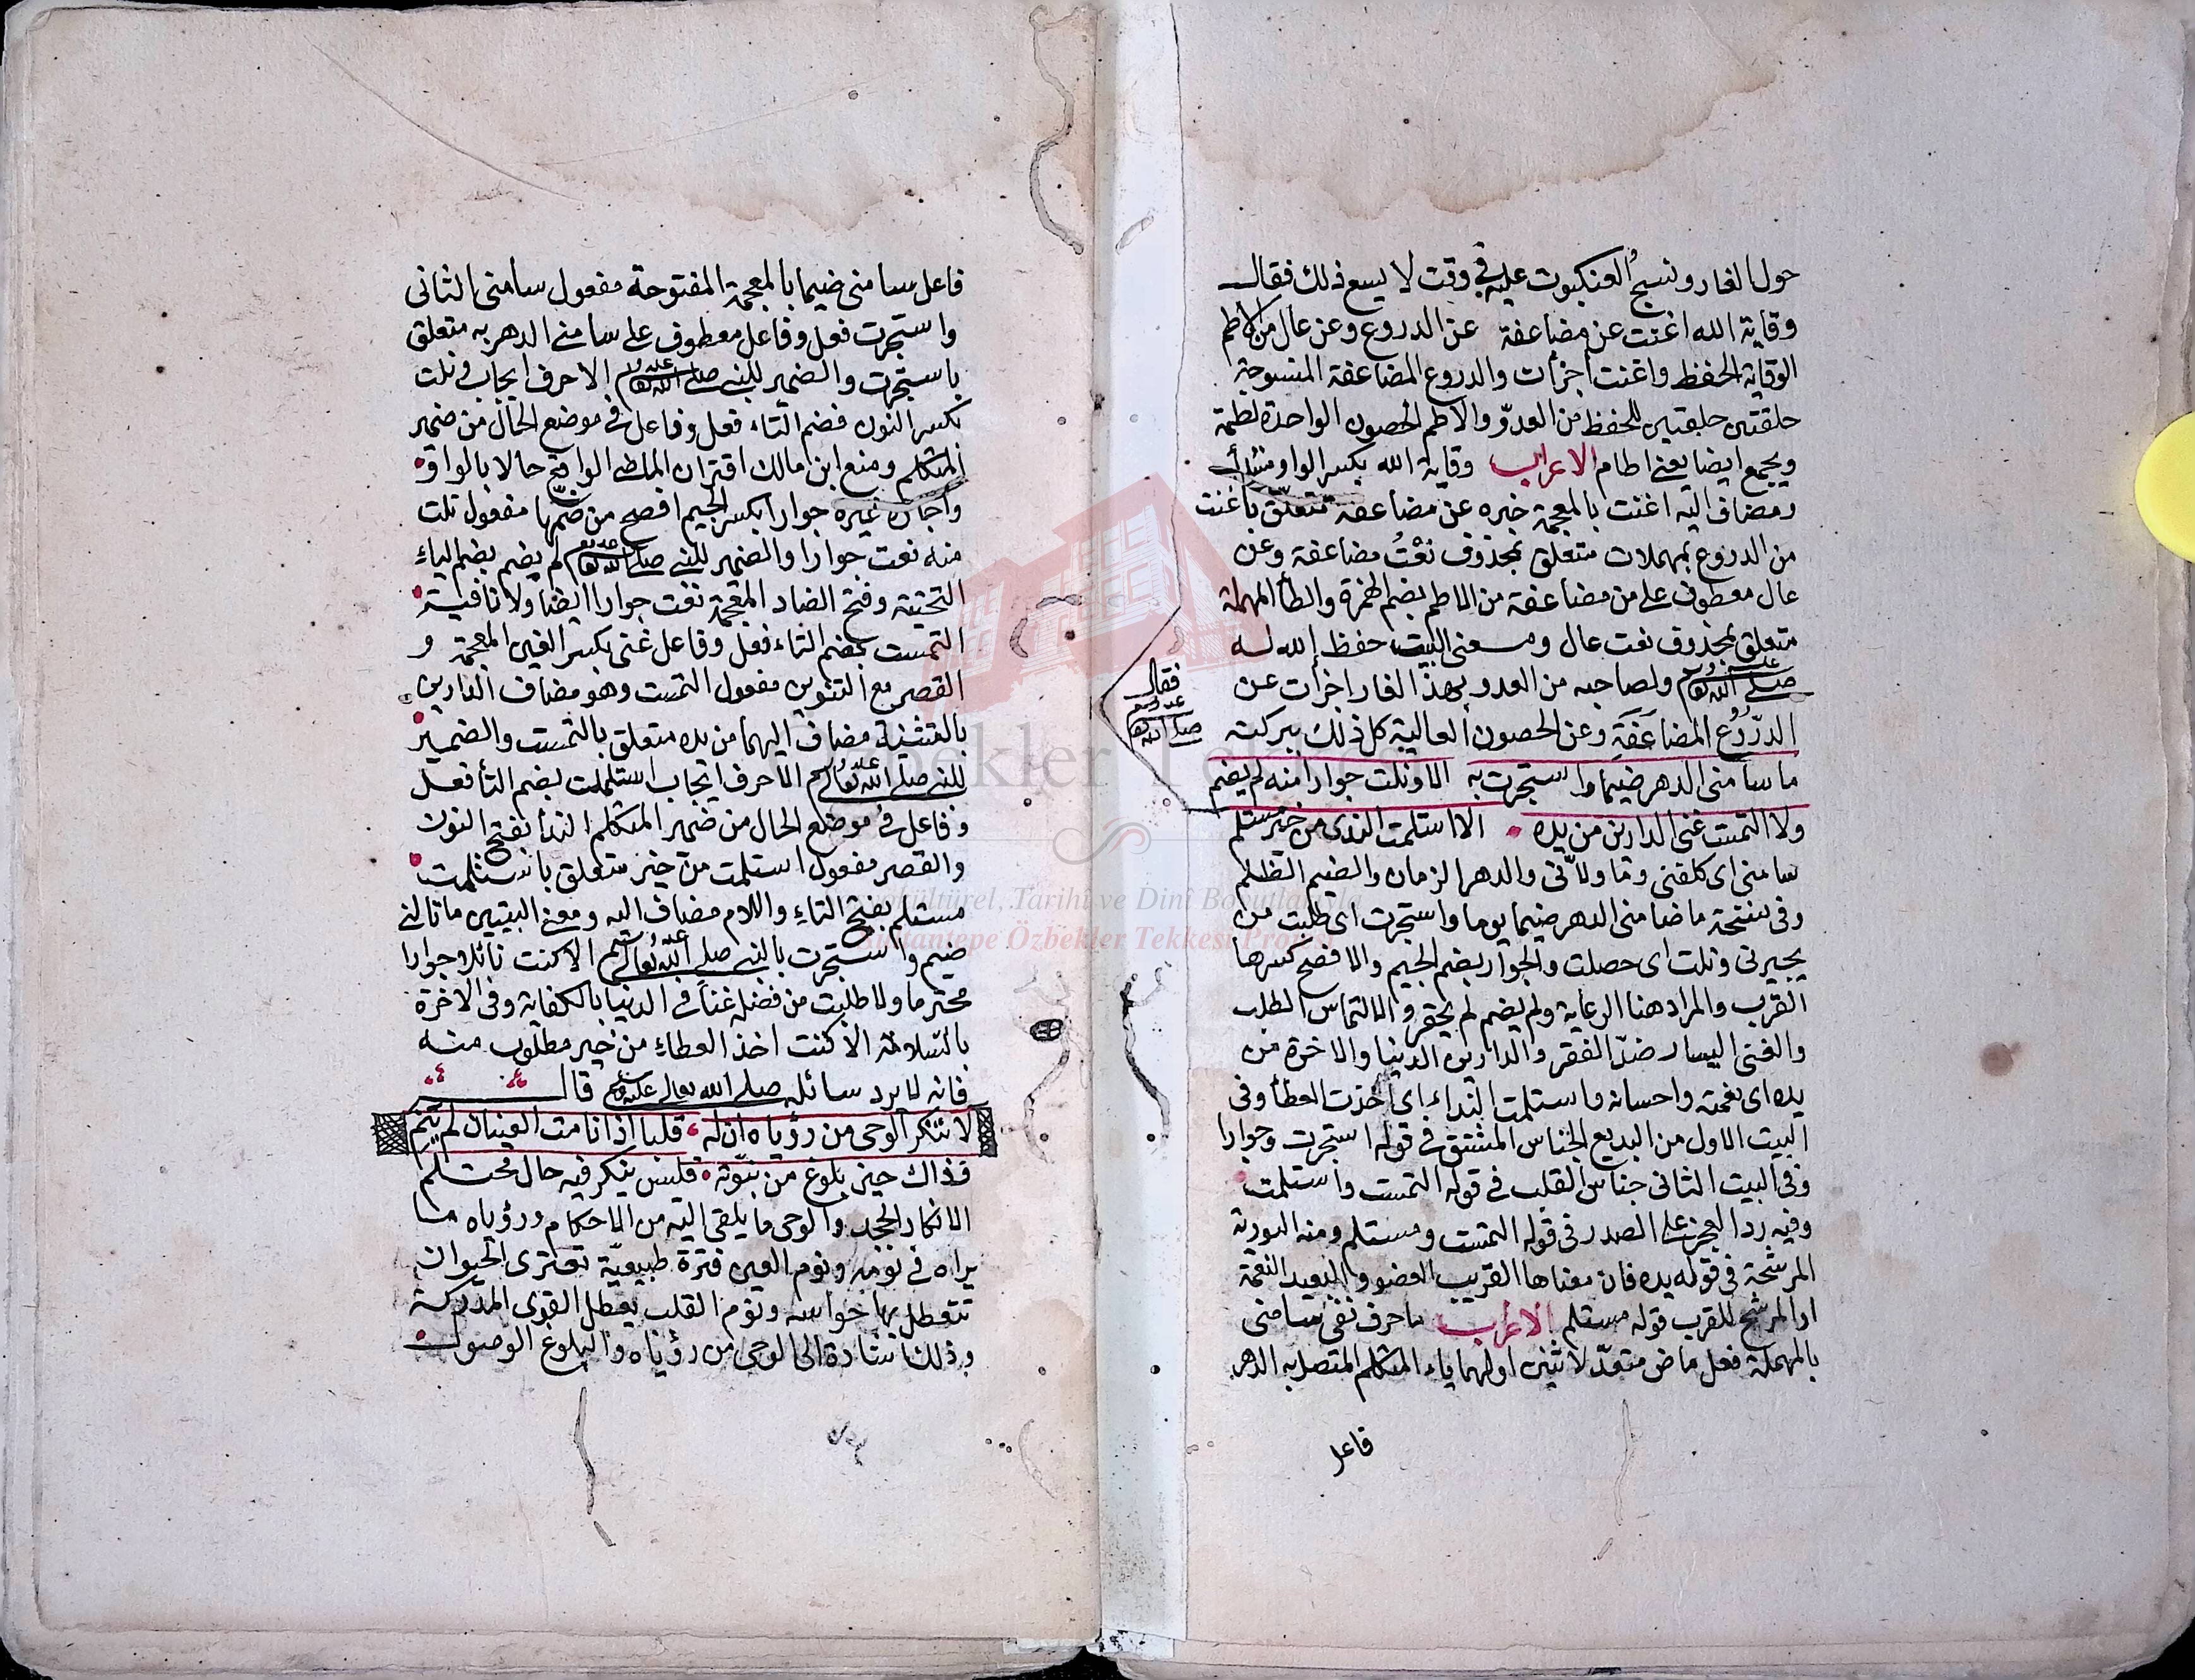 حول الغار ونسج العنكبوت عليه في وقت لا يسع ذلك فقال
وقاية الله اغنت عن مضاعفة عن الدروع وعن عال من الاطم
الوقاية الحفظ واغنت اجزأت والدروع المضاعفة المنسوجة
حلقتين حلقتين للحفظ من العدوّ والاطم الحصون الواحدة لطمة
ويجمع ايضا يعنى اطام الاعراب وقاية الله بكسر الواو مبتدأ
ومضاف اليه اغنت بالمعجمة خبره عن مضاعفة متعلّق باغنت
من الدروع بمهملات متعلق بمحذوف نعْتُ مضاعفة وعن
عال معطوف على من مضاعفة من الاطم بضم الهمزة والطأ المهملة
متعلق بمحذوف نعت عال ومعنى البيت حفظ الله له
صلى الله تعالى عليه وسلم ولصاحبه من العدو بهذا الغار اجزأت عن
الدّرُوع المضاعَفَةِ وعن الحصون العالية كل ذلك ببركته
فقال
صلى الله تعالى عليه وسلم
ما سامنى الدهر ضيما واستجرت به الا ونلت جوارا منه لم يضم
ولا التمست غنى الدارين من يده الا استلمت الندى من خير مستلم
سامنى اى كلفنى وما ولاّنى والدهر الزمان والضيم الظلم
وفى نسخة ما ضامنى الدهر ضيما يوما واستجرت اى طلبت من
يجيرنى ونلت اى حصلت والجوار بضم الجيم والافصح كسرها
القرب والمراد هنا الرعاية ولم يضم لم يحقر والالتماس الطلب
والغنى اليسار ضدّ الفقر والدارين الدنيا والاخرة من
يده اى نعمته واحسانه واستلمت النداء اى اخذت العطأ وفى
البيت الاول من البديع الجناس المشتق فى قوله استجرت وجوارا
وفى البيت الثانى جناس القلب فى قوله التمست واستلمت
وفيه رد العجز على الصدر فى قوله التمست ومستلم ومنه التورية
المرشحة فى قوله يده فان معناها القريب العضو والبعيد النعمة
والمرشح للقرب قوله مستلم الاعراب ما حرف نفى سامنى
بالمهملة فعل ماض متعدّ لاثنين اولهما ياء المتكلم المتصل به الدهر
فاعل
فاعل سامنى ضيما بالمعجمة المفتوحة مفعول سامنى الثانى
واستجرت فعل وفاعل معطوف على سامنى الدهر به متعلق
باستجرت والضمير للنبى صلى الله تعالى عليه وسلم الا حرف ايجاب ونلت
بكسر النون فضم التاء فعل وفاعل فى موضع الحال من ضمير
المتكلم ومنع ابن مالك اقتران الماضى الواقع حالا بالواو
واجازه غيره جوارا بكسر الجيم افصح من ضمّها مفعول نلت
منه نعت جوارا والضمير للنبى صلى الله تعالى عليه وسلم لم يضم بضم الياء
التحتية وفتح الضاد المعجمة نعت جوارا ايضا ولا نافية
التمست بضم التاء فعل وفاعل غنى بكسر الغين المعجمة و
القصر مع التنوين مفعول التمست وهو مضاف الدارين
بالتثنية مضاف اليهما من يده متعلق بالتمست والضمير
للنبى صلى الله تعالى عليه وسلم الا حرف ايجاب استلمت بضم التأ فعل
وفاعل فى موضع الحال من ضمير المتكلم الندأ بفتح النون
والقصر مفعول استلمت من خير متعلق باستلمت
مستلم بفتح التاء واللام مضاف اليه ومعنى البيتين ما نالنى
ضيم واستجرت بالنبى صلى الله تعالى عليه وسلم الا كنت نائلا جوارا
محترما ولا طلبت من فضله غناً فى الدنيا بالكفاية وفى الاخرة
بالسّلامة الا كنت اخذ العطاء من خير مطلوب منه
فانه لا يرد سائله صلى الله تعالى عليه وسلم قال
لا تنكر الوحى من رؤياه ان له قلبا اذا نامت العينان لم ينم
فذاك حين بلوغ من نبوّته فليس ينكر فيه حال محتلم
الانكار الجحد والوحى ما يلقى اليه من الاحكام ورؤياه ما
يراه فى نومه ونوم العين فترة طبيعيّة تعترى الحيوان
تتعطل بها حواسه ونوم القلب يعطل القوى المدركة
وذلك اشارة الى الوحى من رؤياه والبلوغ الوصول